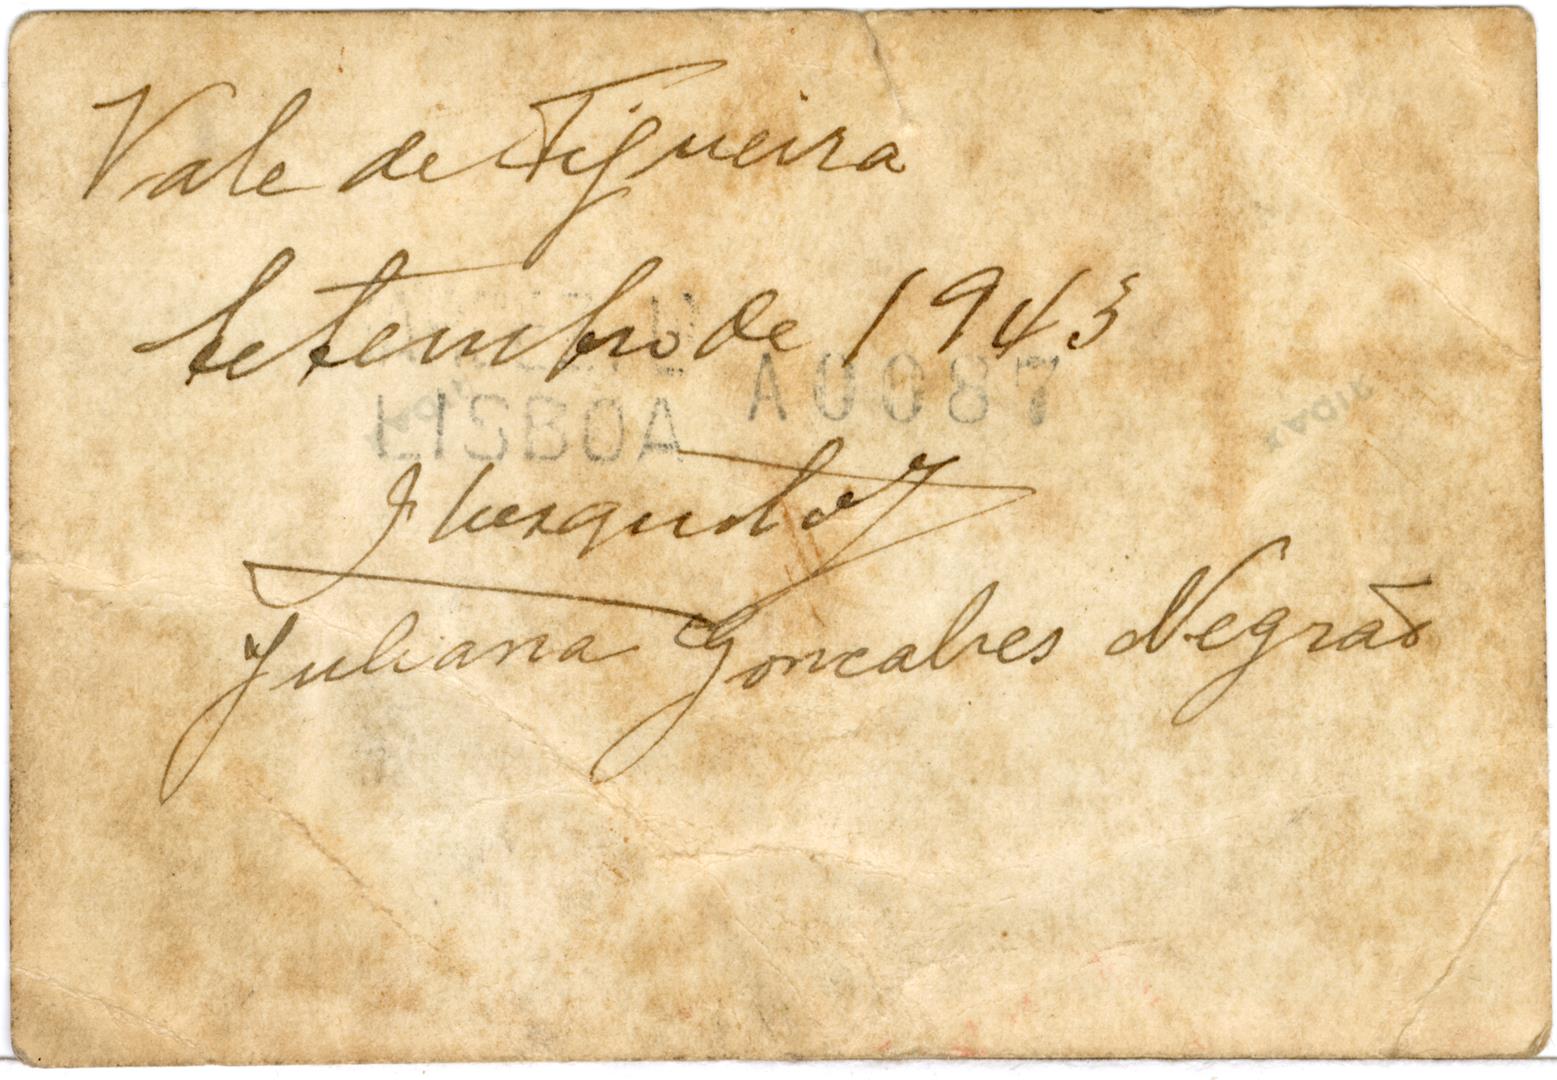 Vale de Figueira
Setembro de 1943
LISBOA A0087
J
Juliana Gonçalves Negrão